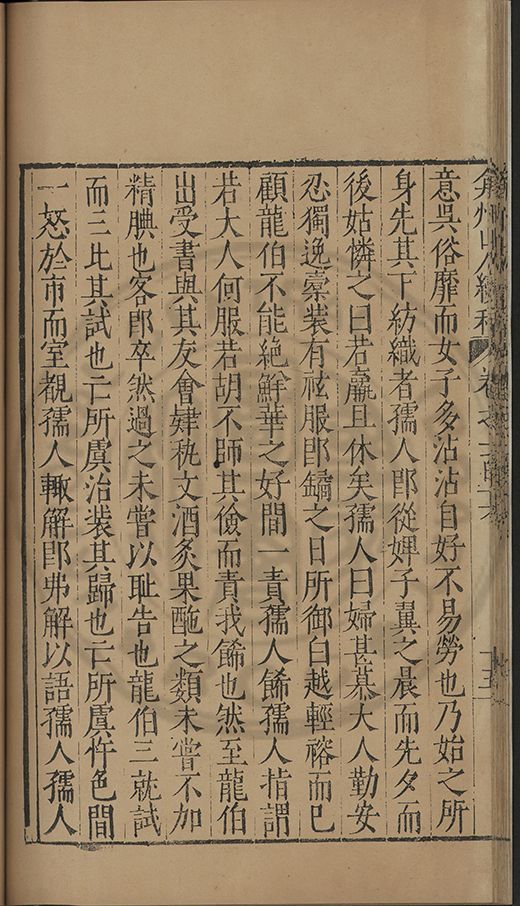 弇州山人續稿 卷之一百
意吳俗靡而女子多沾沾自好不易勞也乃始之所
身先其下紡織者孺人卽從婢子翼之晨而先夕而
後姑憐之曰若羸且休矣孺人曰婦甚慕大人勤安
忍獨逸槖裝有袨服卽鐍之日所御白越輕褣而已
顧龍伯不能絶鮮華之好間一責孺人餙孺人指謂
若大人何服若胡不師其儉而責我餙也然至龍伯
出受書與其友會肄秇文酒炙果酏之類未嘗不加
精腆也客卽卒然過之未嘗以耻告也龍伯三就試
而三比其試也亡所虞治裝其歸也亡所虞忤色間
一怒於市而室覩孺人輙解卽弗解以語孺人孺人